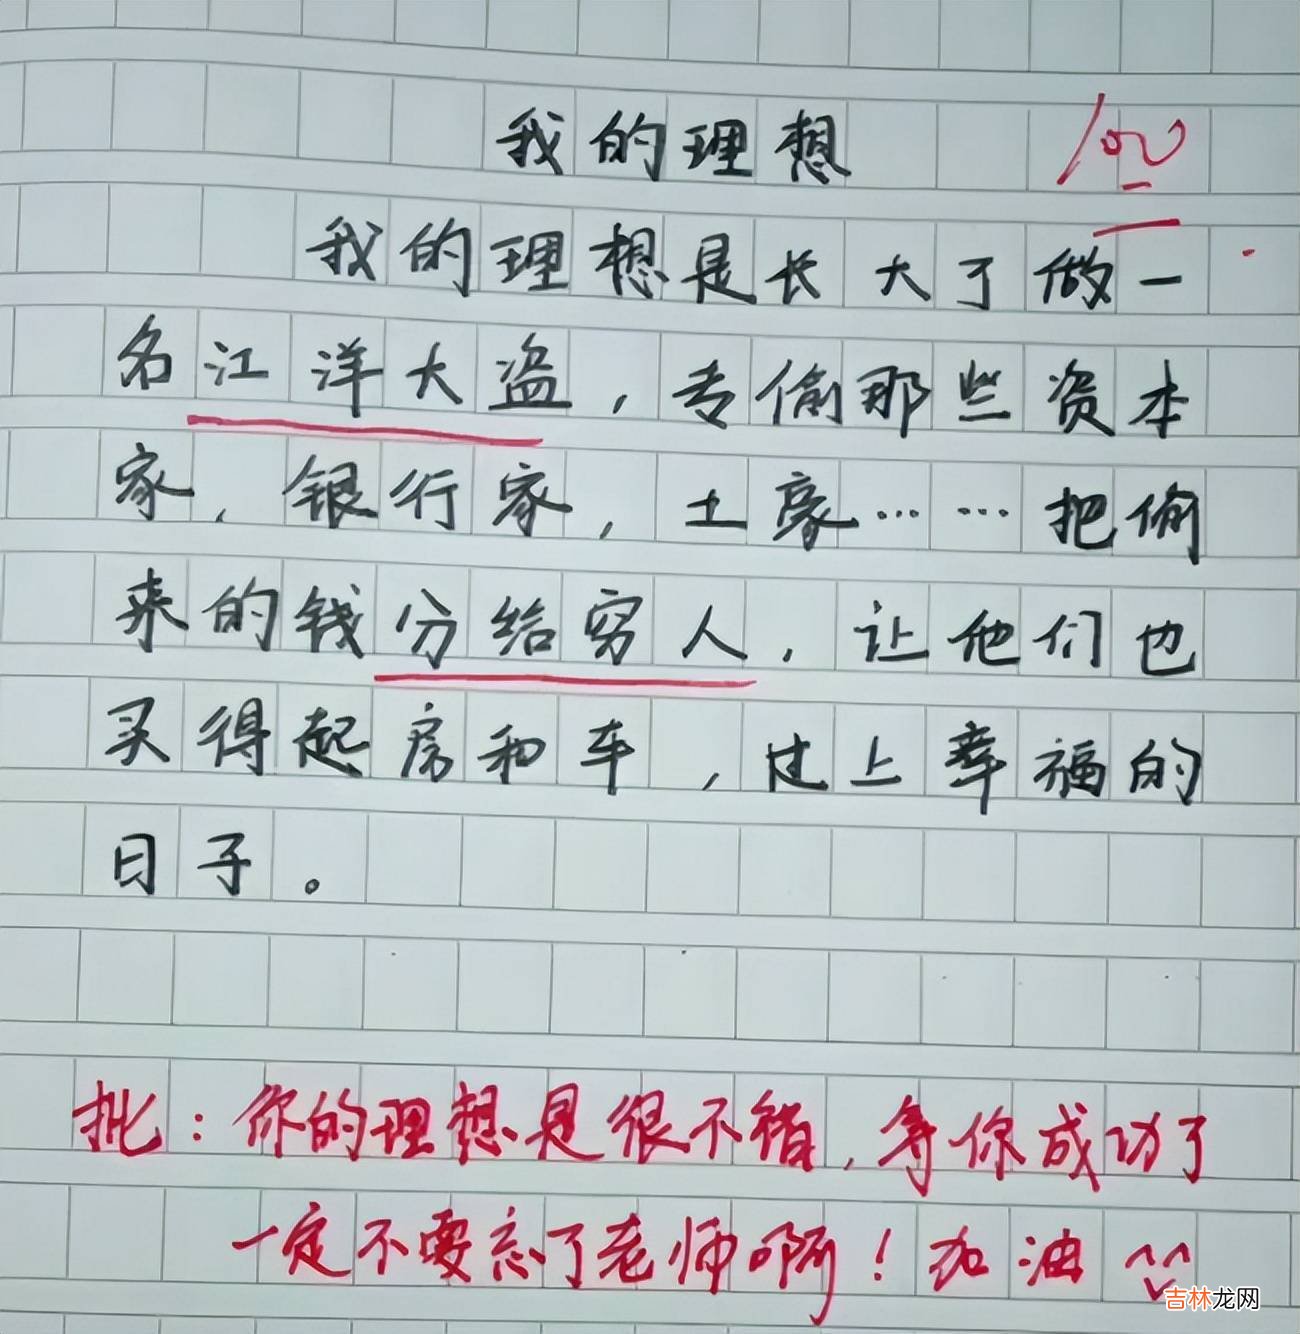 我的理想
100
我的理想是长大了做一
名江洋大盗，专偷那些资本
家，银行家，土豪……把偷
来的钱分给穷人，让他们也
买得起房和车，过上幸福的
日子。
批：你的理想是很不错，等你成功了
一定不要忘了老师啊！加油
吉林龙网